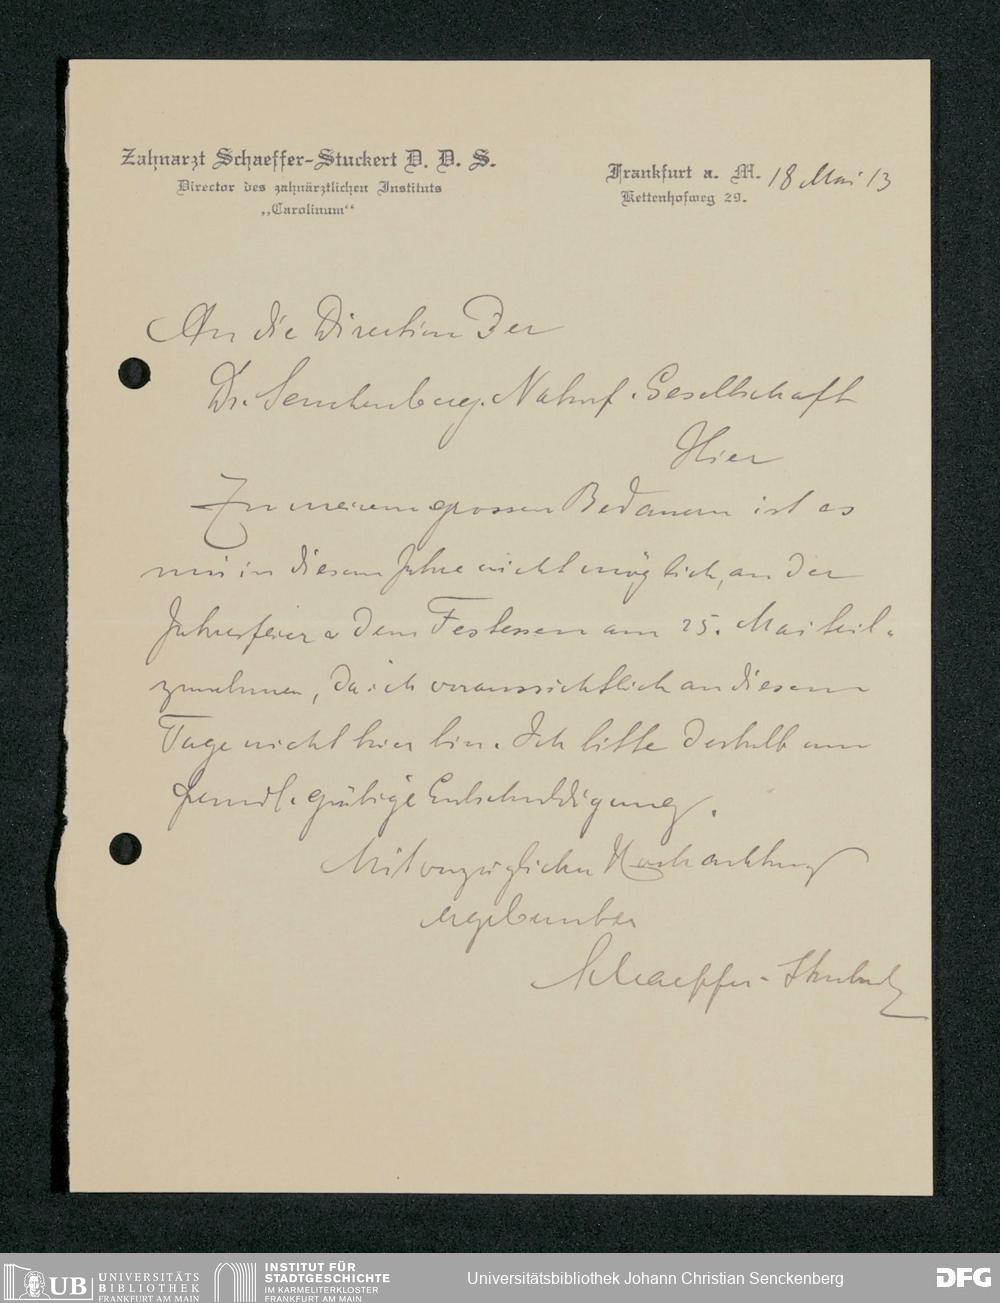 Zahnarzt Schaeffer-Stuckert D. D. S.
Director des zahnärztlichen Instituts
„Carolinum“
Frankfurt a. M. 18 Mai 13
Kettenhofweg 29.
An die Direction der
Dr. Senckenberg. Naturf. Gesellschaft
Hier
Zu meinem grossen Bedauern ist es
mir in diesem Jahre nicht möglich, an der
Jahresfeier & dem Festessen am 25. Mai teil-
zunehmen, da ich voraussichtlich an diesem
Tage nicht hier bin. Ich bitte deshalb um
freundl. gütige Entschuldigung.
Mit vorzüglicher Hochachtung
ergebenster
Schaeffer-Stuckert
UB UNIVERSITÄTS
BIBLIOTHEK
FRANKFURT AM MAIN
INSTITUT FÜR
STADTGESCHICHTE
IM KARMELITERKLOSTER
FRANKFURT AM MAIN
Universitätsbibliothek Johann Christian Senckenberg
DFG